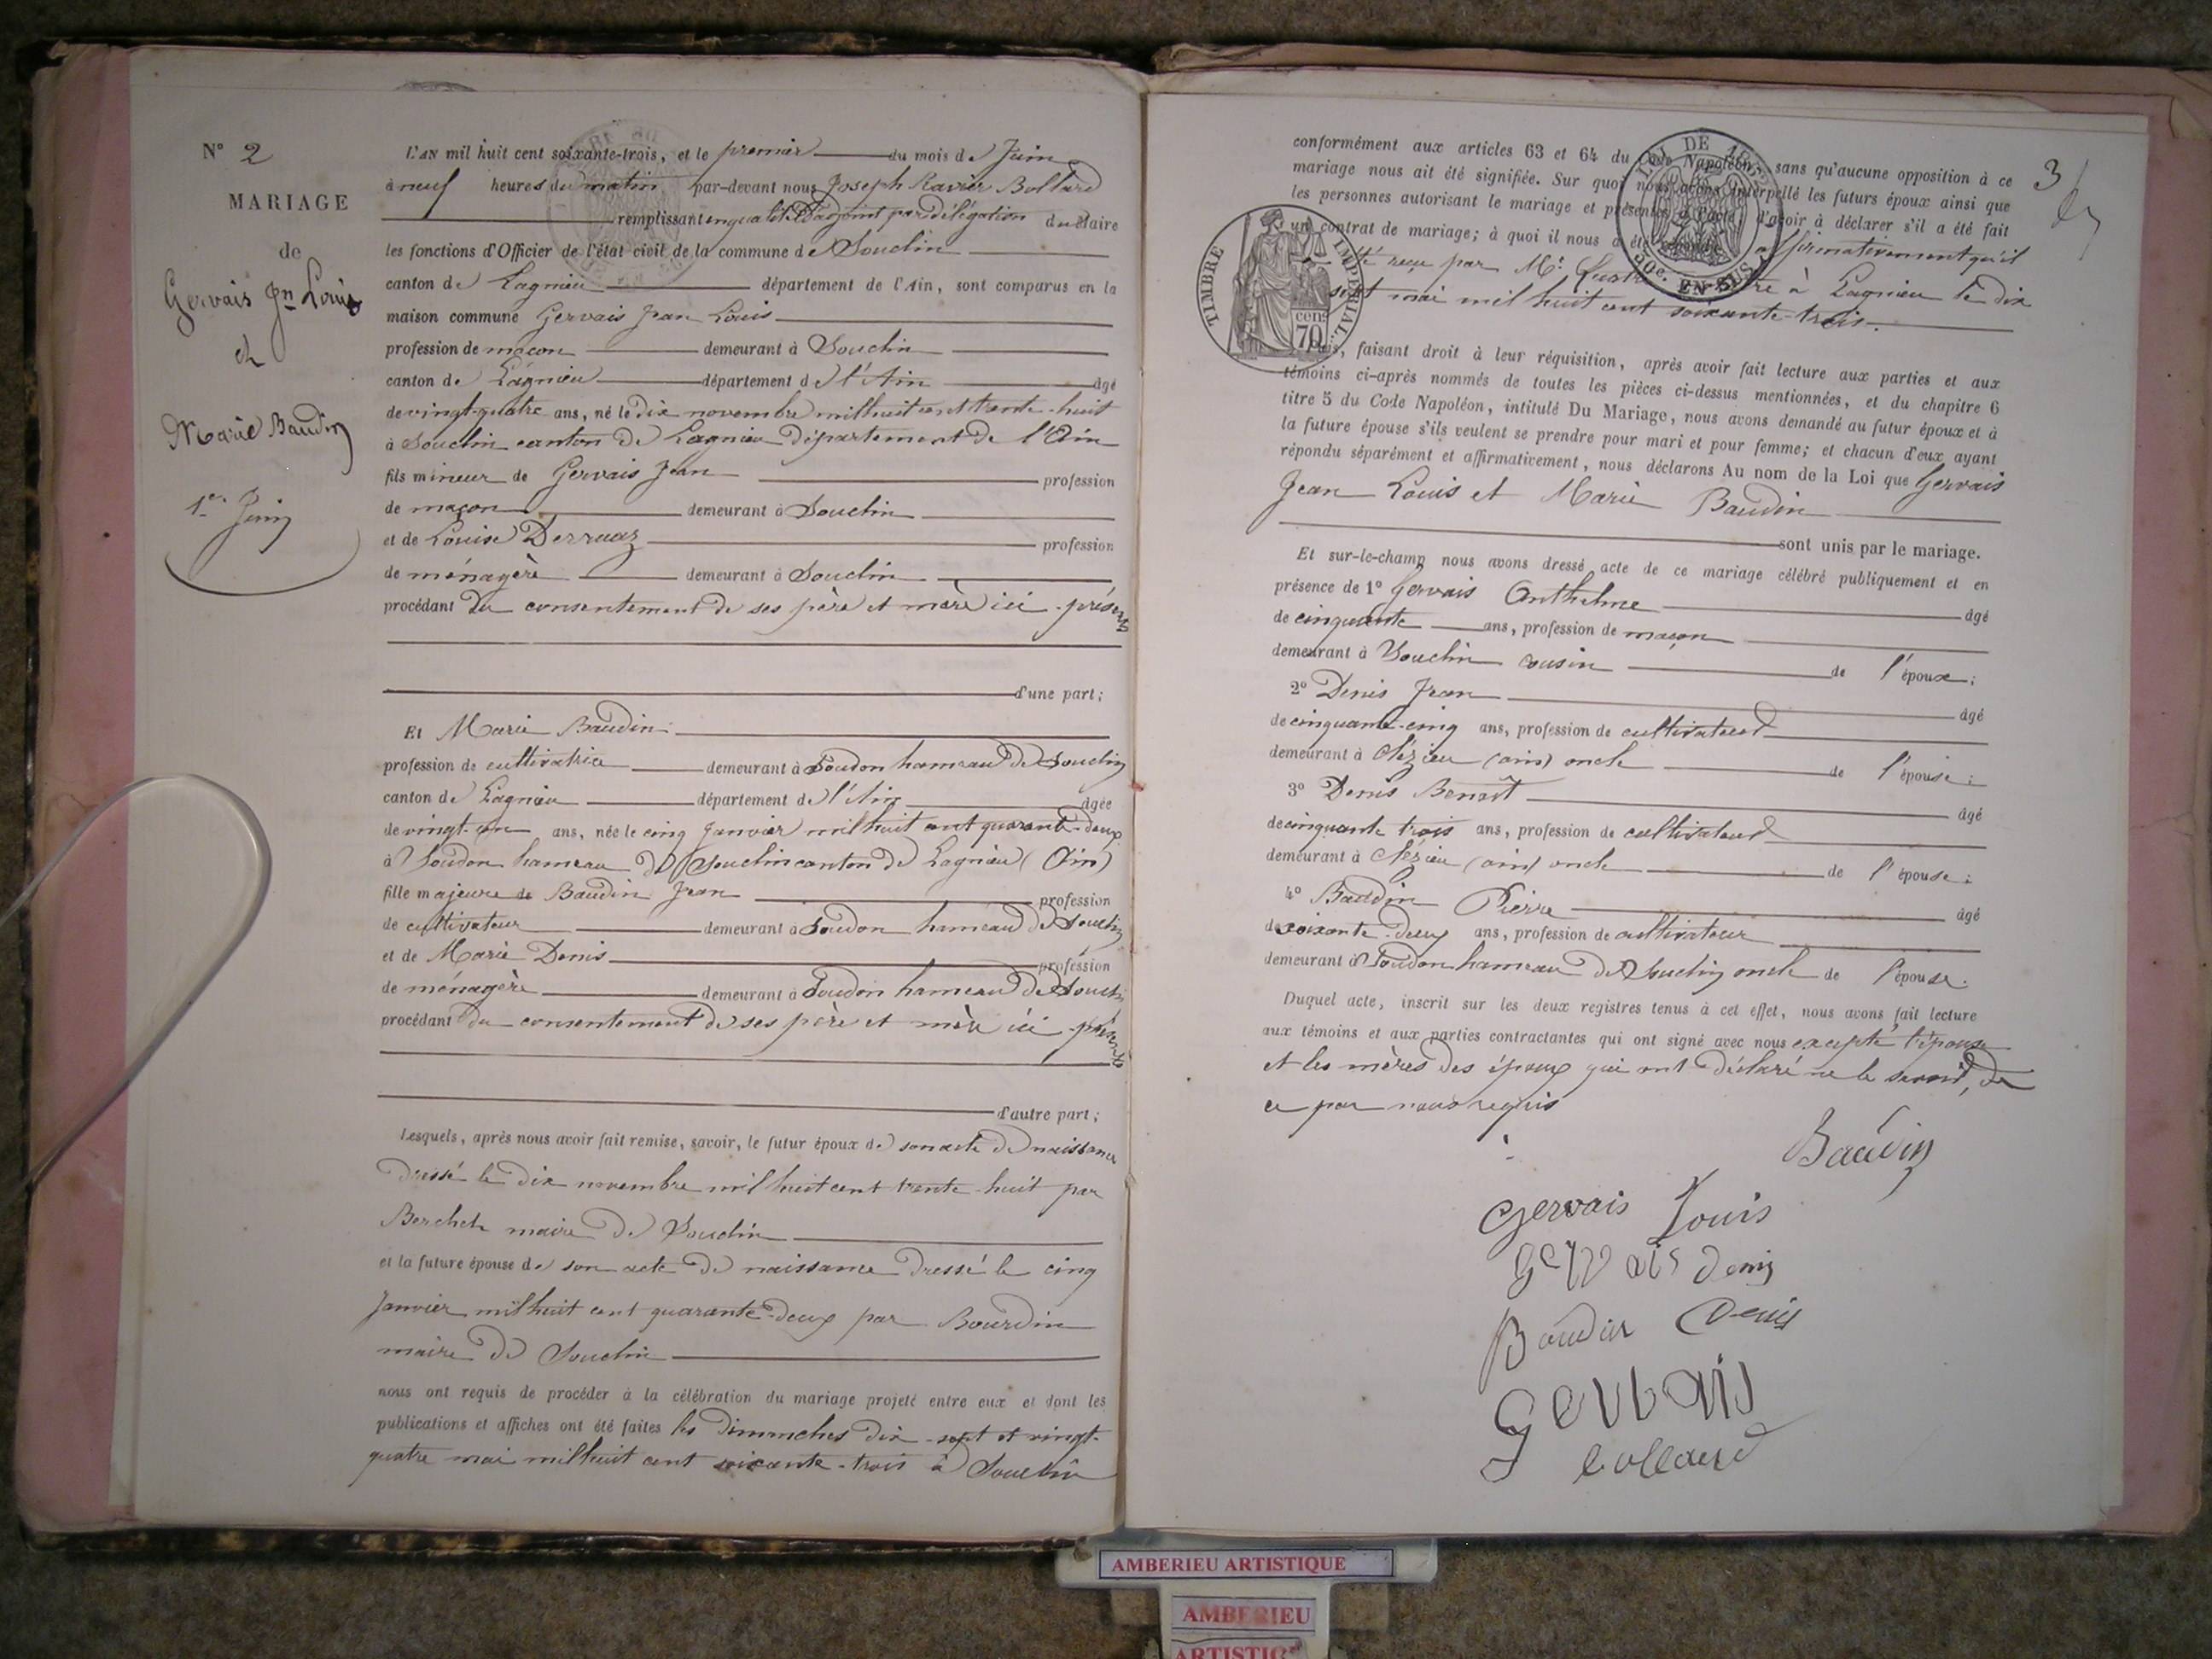 N° 2
MARIAGE
de
Gervais Jn Louis
et
Marie Baudin
1er Juin
L'AN mil huit cent soixante-trois, et le premier du mois de Juin
à neuf heures du matin par-devant nous Joseph Xavier Bolland
remplissant en qualité d'adjoint par délégation du Maire
les fonctions d'Officier de l'état civil de la commune de Souclin
canton de Lagnieu département de l'Ain, sont comparus en la
maison commune Gervais Jean Louis
profession de maçon demeurant à Souclin
canton de Lagnieu département de l'Ain âgé
de vingt-quatre ans, né le dix novembre mil huit cent trente-huit
à Souclin canton de Lagnieu département de l'Ain
fils mineur de Gervais Jean profession
de maçon demeurant à Souclin
et de Louise Derruaz profession
de ménagère demeurant à Souclin
procédant du consentement de ses père et mère ici-présents
d'une part;
Et Marie Baudin
profession de cultivatrice demeurant à Soudon hameau de Souclin
canton de Lagnieu département de l'Ain âgée
de vingt-un ans, née le cinq Janvier mil huit cent quarante-deux
à Soudon hameau de Souclin canton de Lagnieu (Ain)
fille majeure de Baudin Jean profession
de cultivateur demeurant à Soudon hameau de Souclin
et de Marie Denis profession
de ménagère demeurant à Soudon hameau de Souclin
procédant du consentement de ses père et mère ici-présents
d'autre part;
Lesquels, après nous avoir fait remise, savoir, le futur époux de son acte de naissance
dressé le dix novembre mil huit cent trente-huit par
Berchet maire de Souclin
et la future épouse de son acte de naissance dressé le cinq
Janvier mil huit cent quarante-deux par Bourdin
maire de Souclin
nous ont requis de procéder à la célébration du mariage projeté entre eux et dont les
publications et affiches ont été faites les dimanches dix-sept et vingt-
quatre mai mil huit cent soixante-trois à Souclin
3
conformément aux articles 63 et 64 du Code Napoléon, sans qu'aucune opposition à ce
mariage nous ait été signifiée. Sur quoi nous avons interpellé les futurs époux ainsi que
les personnes autorisant le mariage et présentes à l'acte, d'avoir à déclarer s'il a été fait
un contrat de mariage; à quoi il nous a été répondu affirmativement qu'il
été reçu par Me. à Lagnieu le dix
sept mai mil huit cent soixante-trois.
LOI DE
50c. EN SUS
TIMBRE IMPÉRIAL
70 cen
faisant droit à leur réquisition, après avoir fait lecture aux parties et aux
témoins ci-après nommés de toutes les pièces ci-dessus mentionnées, et du chapitre 6
titre 5 du Code Napoléon, intitulé Du Mariage, nous avons demandé au futur époux et à
la future épouse s'ils veulent se prendre pour mari et pour femme; et chacun d'eux ayant
répondu séparément et affirmativement, nous déclarons Au nom de la Loi que Gervais
Jean Louis et Marie Baudin
sont unis par le mariage.
Et sur-le-champ nous avons dressé acte de ce mariage célébré publiquement et en
présence de 1° Gervais Anthelme âgé
de cinquante ans, profession de maçon
demeurant à Souclin cousin de l'époux;
2° Denis Jean âgé
de cinquante-cinq ans, profession de cultivateur
demeurant à Clézieu (ain) oncle de l'épouse;
3° Denis Benoît âgé
de cinquante trois ans, profession de cultivateur
demeurant à Clézieu (ain) oncle de l'épouse;
4° Baudin Pierre âgé
de soixante-deux ans, profession de cultivateur
demeurant à Soudon hameau de Souclin oncle de l'épouse.
Duquel acte, inscrit sur les deux registres tenus à cet effet, nous avons fait lecture
aux témoins et aux parties contractantes qui ont signé avec nous excepté l'épouse
et les mères des époux qui ont déclaré ne le savoir, de
ce par nous requis
Baudin
Gervais Louis
Gervais Denis
Baudin Denis
Gervais
Bolland
AMBERIEU ARTISTIQUE
AMBERIEU
ARTISTIQUE